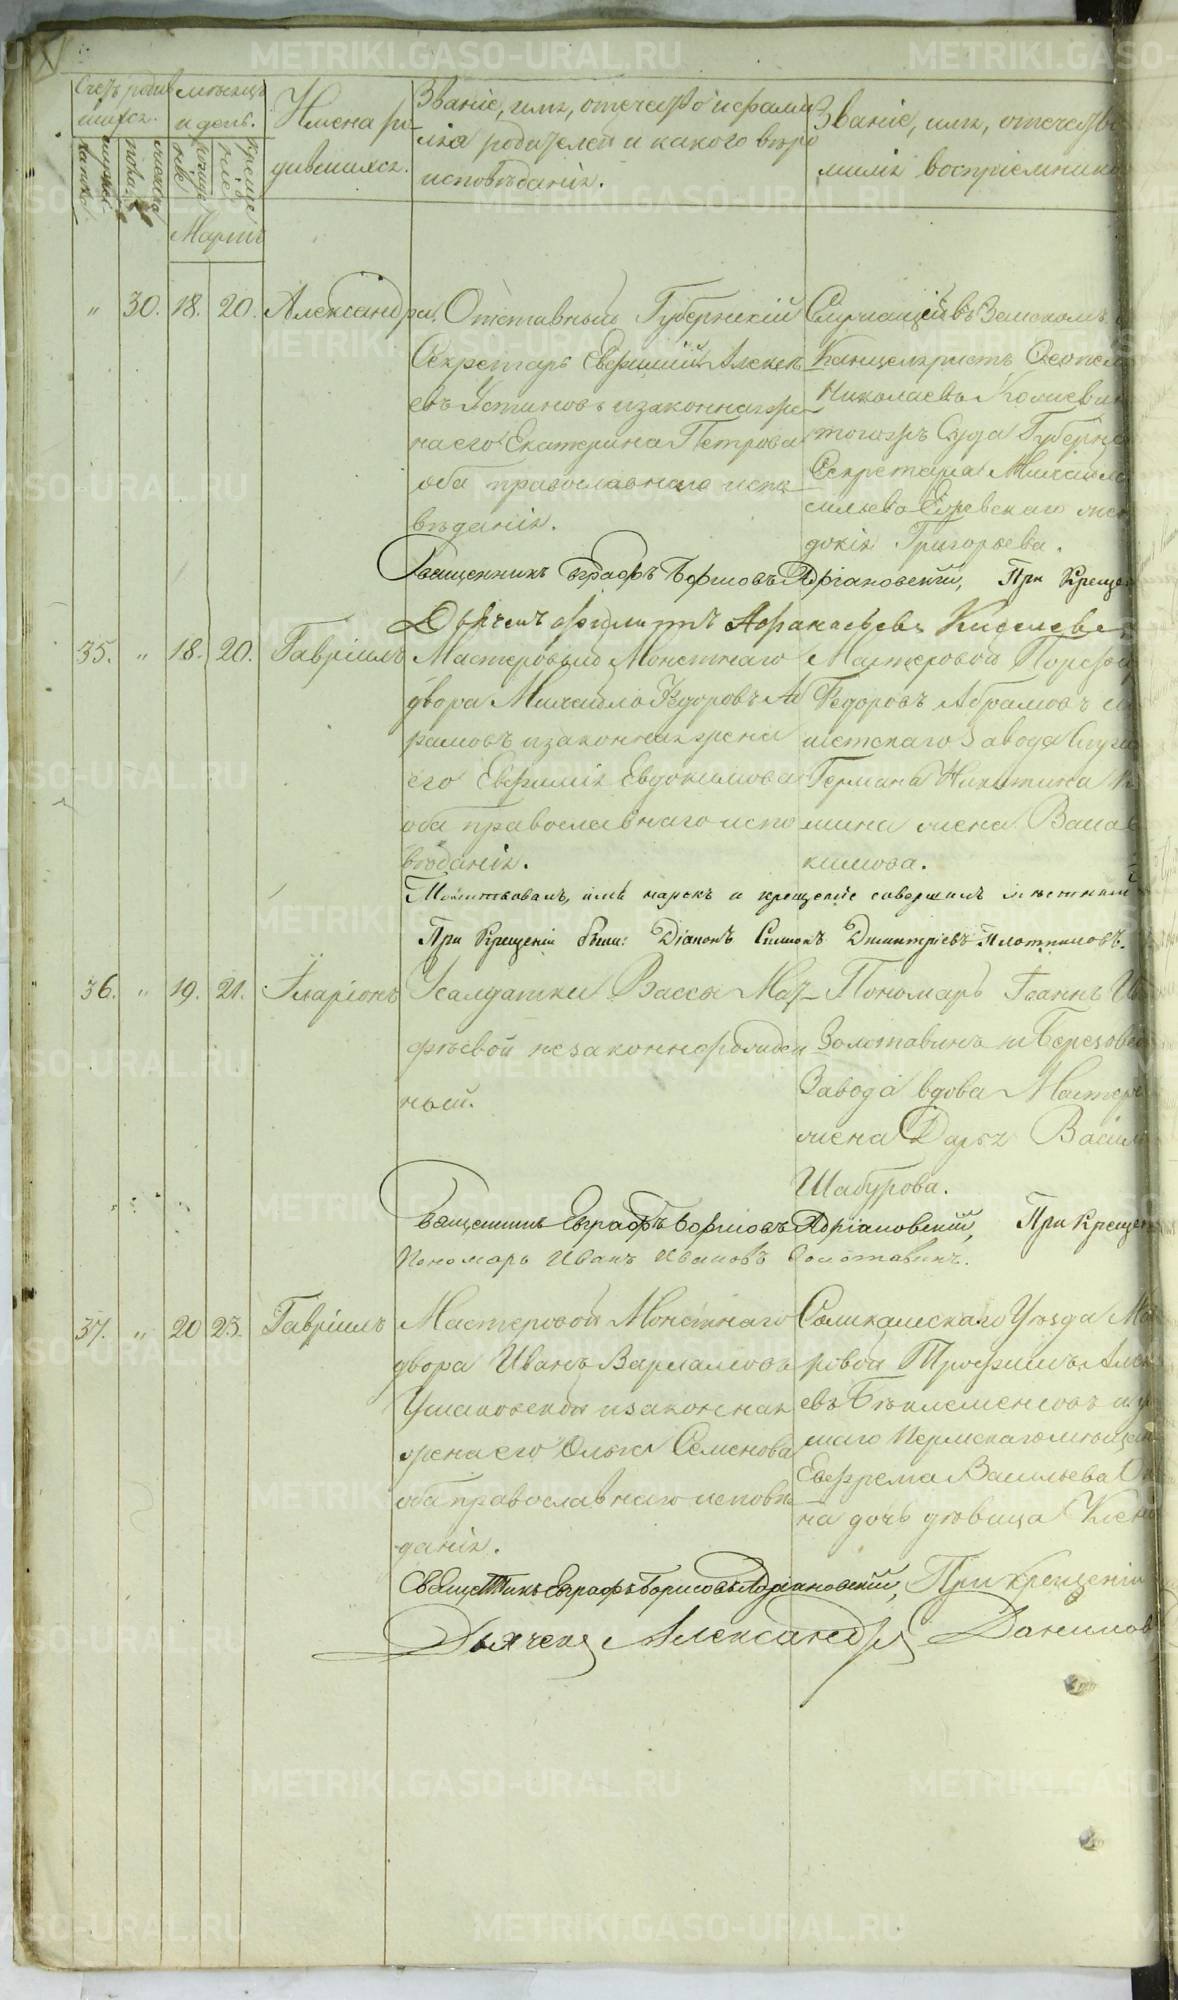 METRIKI.GASO-URAL.RU
Счетъ родив
шихся.
Мѣсяцъ
и день.
Имена ро
дившихся.
Званіе, имя, отечество и фами
лія родителей и какого вѣро
исповѣданія.
Званіе, имя, отечество
милія воспріемнико
Мартъ
" 30. 18. 20. Александра.
Отставный Губернскій
Секретарь Евфимій Алексѣ
евъ Устиновъ и законная же
на его Екатерина Петрова
оба православнаго испо
вѣданія.
Служащій въ Земскомъ
Канцеляристъ
Николаевъ
тогожъ Суда Губернс
Секретаря Михаила
сильева жен
докія Григорьева.
Священникъ Евграфъ Борисовъ Адріановскій, При Креще
Дьячекъ Филиппъ Афанасьевъ Киселевъ
35. " 18. 20. Гавріилъ
Мастеровый Монетнаго
двора Михайло Ѳедоровъ Аб
рамовъ и законная жена
его Евфимія Евдокимова
оба православнаго испо
вѣданія.
Мастеровой
Ѳедоровъ Абрамовъ и
шетскаго Завода Служ
Германа Никитина
мина жена Васса
кимова.
Молитвовалъ, имя нарекъ и крещеніе совершилъ
При Крещеніи были: Діаконъ Симонъ Дмитріевъ Плотниковъ.
36. " 19. 21. Иларіонъ
У солдатки Вассы Мат
фѣевой незаконнорожден
ный.
Пономарь Іоаннъ Ив
Золотавинъ и Березовс
Завода вдова Мастер
жена Дарья Васил
Шабурова.
Священникъ Евграфъ Борисовъ Адріановскій, При Крещен
Пономарь Иванъ Ивановъ Золотавинъ.
37. " 20 23. Гавріилъ
Мастеровой Монетнаго
двора Иванъ Варламовъ
Ушаковской и законная
жена его Ольга Семенова
оба православнаго исповѣ
данія.
Соликамскаго Уѣзда Ма
ровой Трофимъ Алек
евъ и у
шаго Пермскаго мѣщан
Евфрема Васильева
на дочь дѣвица Ксен
Священникъ Евграфъ Борисовъ Адріановскій, При крещеніи
Дьячекъ Александръ Данилов